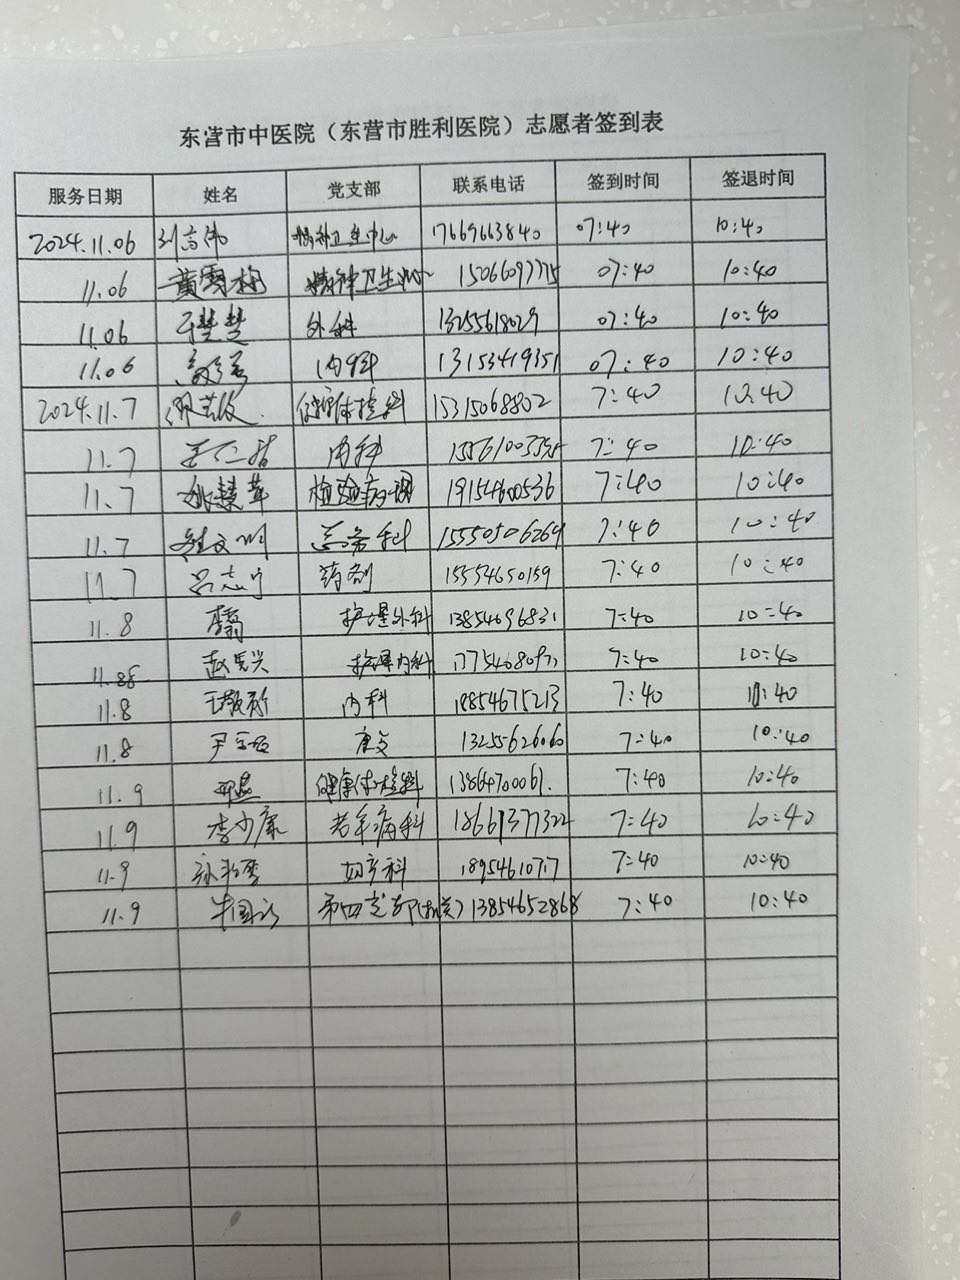 东营市中医院（东营市胜利医院）志愿者签到表
服务日期 姓名 党支部 联系电话 签到时间 签退时间
2024.11.06 刘高伟 精神卫生中心 17669663840 07:40 10:40
11.06 黄雪梅 精神卫生 15066097775 07:40 10:40
11.06 楚楚 外科 13255618029 07:40 10:40
11.06 内科 13153419351 07:40 10:40
2024.11.7 健康体检科 15315068802 7:40 10:40
11.7 内科 7:40 10:40
11.7 姚慧萍 检验病理 19154600536 7:40 10:40
11.7 文明 总务科 15550506269 7:40 10:40
11.7 吕志宁 药剂 15554650159 7:40 10:40
11.8 护理外科 13854696831 7:40 10:40
11.8 赵 兴 护理内科 7:40 10:40
11.8 王敬新 内科 18854675213 7:40 10:40
11.8 尹 康复 13255626060 7:40 10:40
11.9 健康体检科 13864700061. 7:40 10:40
11.9 李少康 老年病科 18661377322 7:40 10:40
11.9 妇产科 18954610717 7:40 10:40
11.9 牛国 第四支部(机关) 13854652868 7:40 10:40